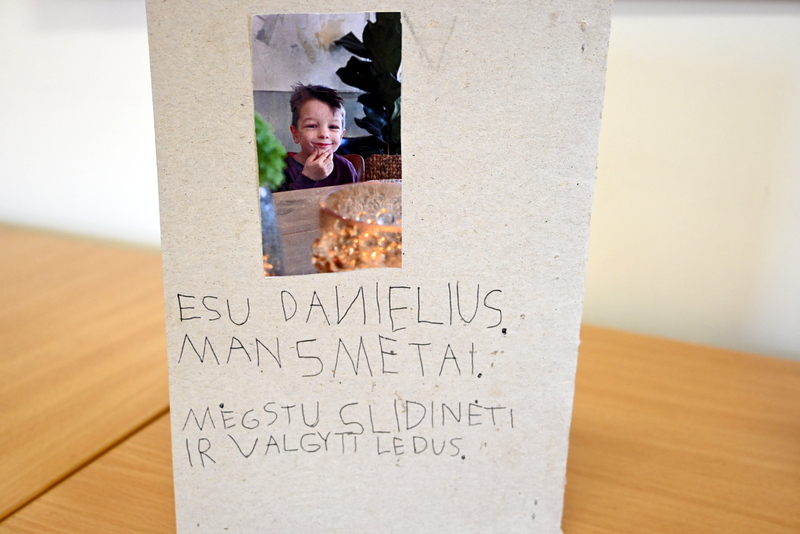 ESU DANIELIUS.
MAN 5 METAI.
MĖGSTU SLIDINĖTI
IR VALGYTI LEDUS.